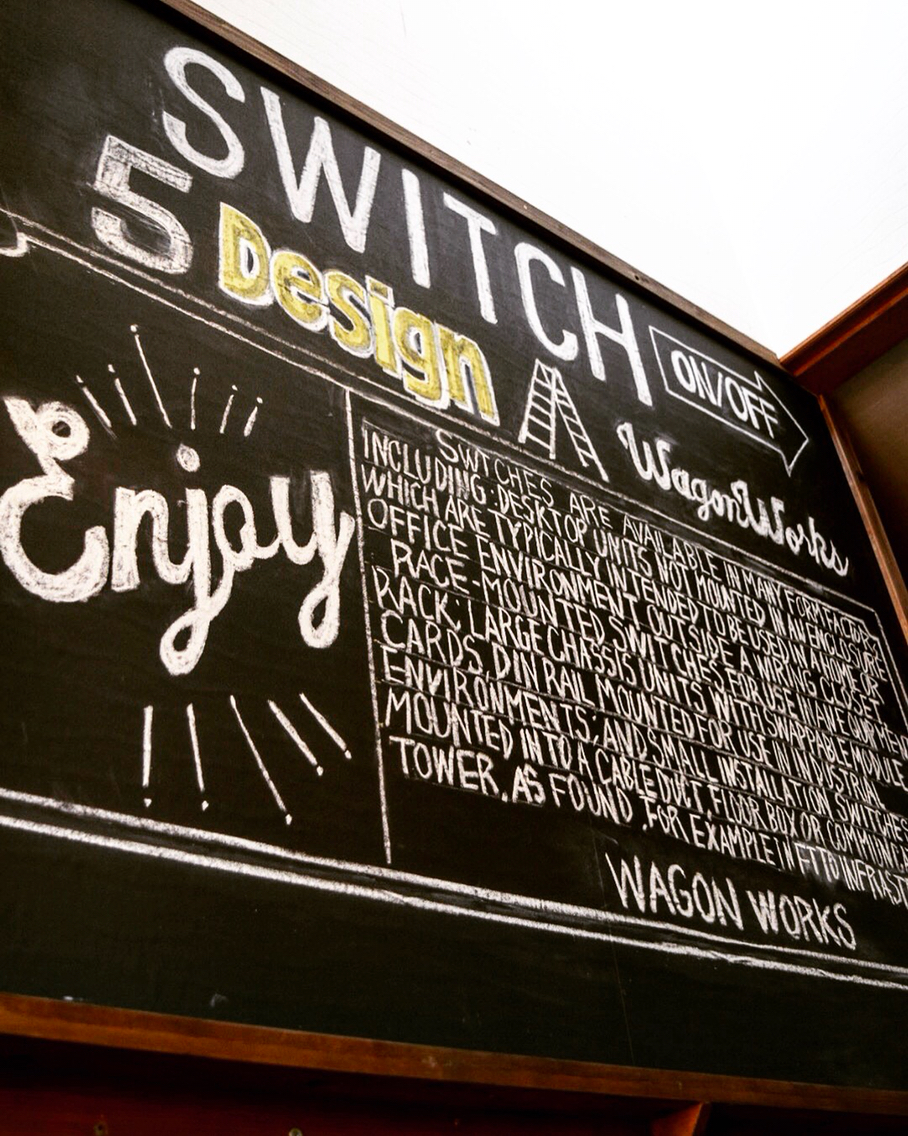 SWITCH
5 Design
ON/OFF
WagonWorks
Enjoy
SWTCHES ARE AVAILABLE IN MANY FORM FACTORS
INCLUDING: DESKTOP UNITS NOT MOUNTED IN AN ENCLOSURE
WHICH ARE TYPICALLY INTENDED TO BE USED IN A HOME OR
OFFICE ENVIRONMENT OUTSIDE A WIRING CLOSET
RACE-MOUNTED SWITCHES FOR USE
RACK; LARGE CHASSIS UNITS WITH SWAPPABLE MODULE
CARDS, DIN RAIL MOUNTED FOR USE IN INDUSTRIAL
ENVIRONMENTS; AND SMALL INSTALLATION SWITCHES
MOUNTED INTO A CABLE DUCT, FLOOR BOX OR
TOWER, AS FOUND, FOR EXAMPLE IN FTTO
WAGON WORKS